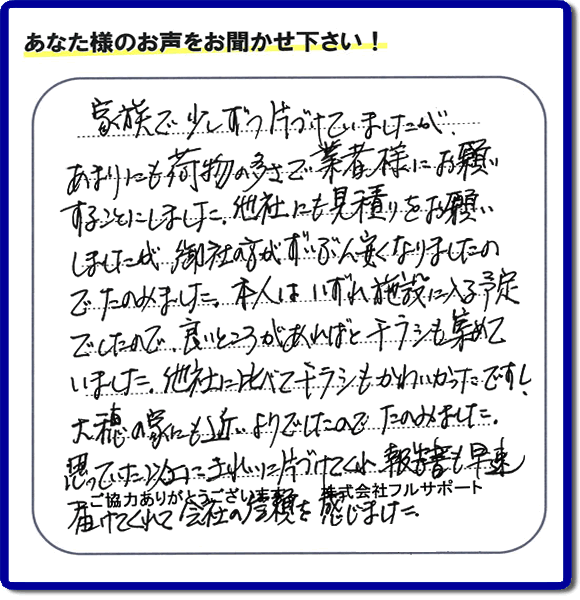 あなた様のお声をお聞かせ下さい！
家族で少しずつ片づけていましたが、
あまりにも荷物の多さで業者様にお願い
することにしました。他社にも見積りをお願い
しましたが 御社の方がずいぶん安くなりましたの
でたのみました。本人はいずれ施設に入る予定
でしたので、良いところがあればとチラシも集めて
いました。他社に比べてチラシもかわいかったです！
大穂の家にも近いよりでしたのでたのみました。
思っていた以上にきれいに片づけてくれ、報告書も早速
届けてくれて会社の信頼を感じました。
ご協力ありがとうございます 株式会社フルサポート